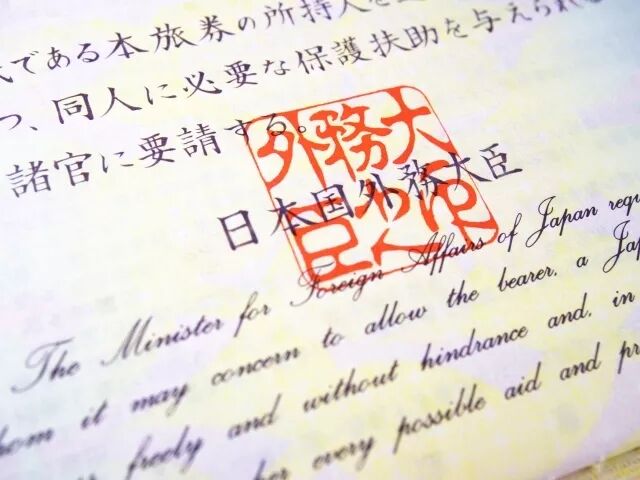 である本旅券の所持人を
つ、同人に必要な保護扶助を与えられ
諸官に要請する。
外務大
日本国外務大臣
The Minister for Foreign Affairs of Japan requ
hom it may concern to allow the bearer, a Jap
freely and without hindrance and, in
her every possible aid and pr